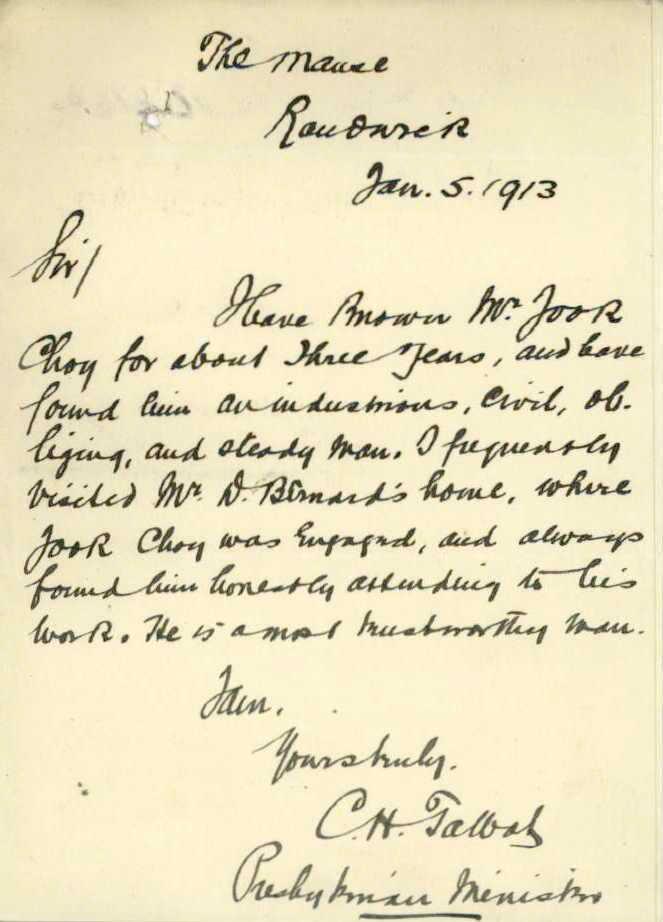 The Manse
Randwick
Jan. 5. 1913
Sir/
I have known Mr. Jook
Choy for about three years, and have
found him an industrious, civil, ob-
liging, and steady man. I frequently
visited Mr. D. Bernard's home, where
Jook Choy was engaged, and always
found him honestly attending to his
work. He is a most trustworthy man.
I am,
Yours truly.
C. H. Talbot
Presbyterian Minister